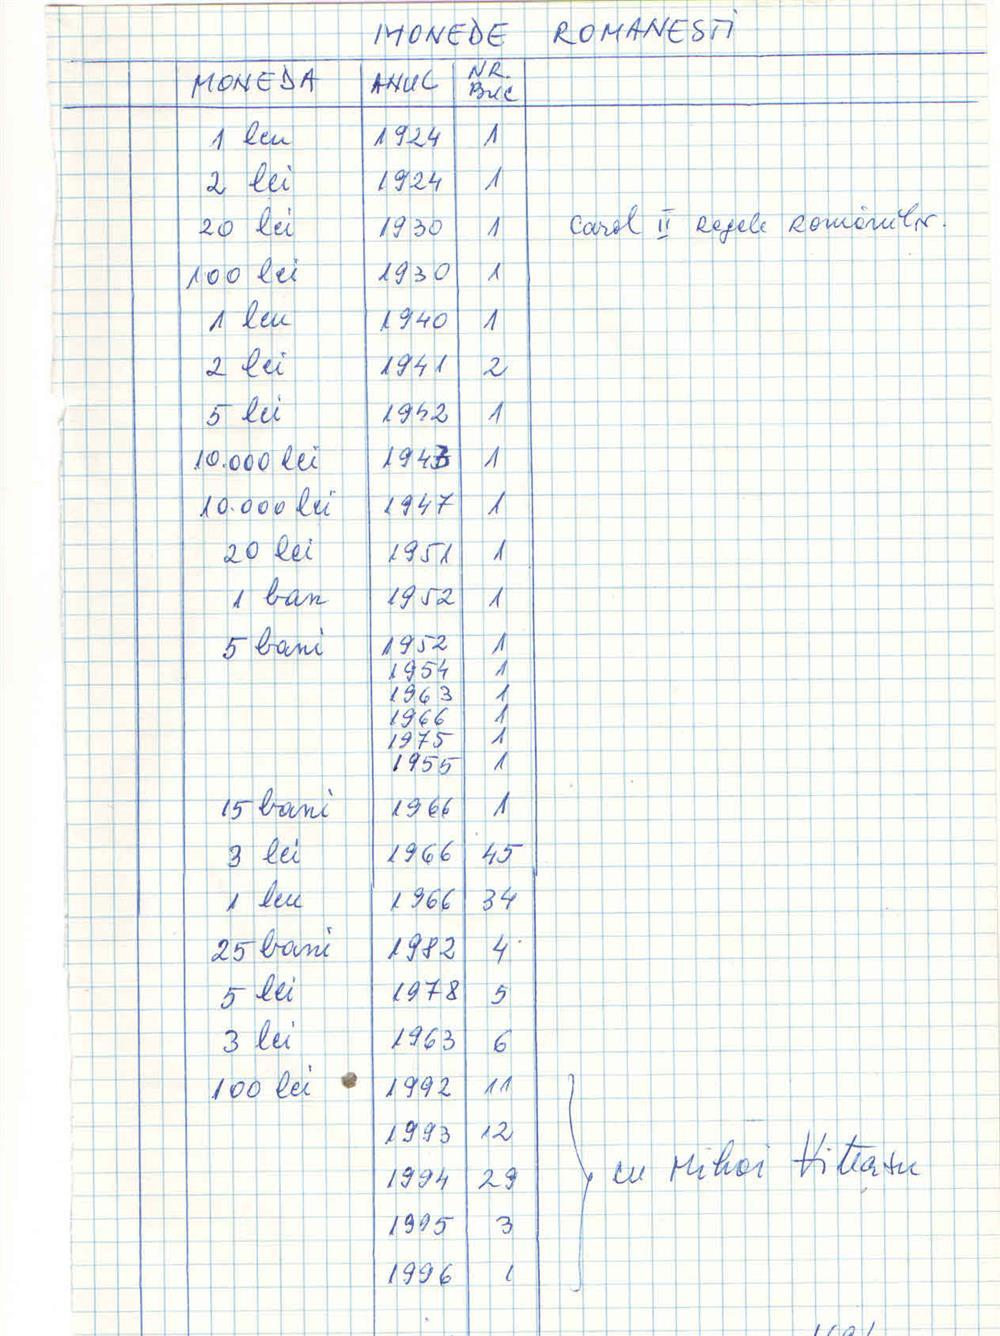 MONEDE ROMANESTI
MONEDA ANUL NR. BUC
1 leu 1924 1
2 lei 1924 1
20 lei 1930 1 Carol II Regele Românilor.
100 lei 1930 1
1 leu 1940 1
2 lei 1941 2
5 lei 1942 1
10.000 lei 1943 1
10.000 lei 1947 1
20 lei 1951 1
1 ban 1952 1
5 bani 1952 1
1954 1
1963 1
1966 1
1975 1
1955 1
15 bani 1966 1
3 lei 1966 45
1 leu 1966 34
25 bani 1982 4
5 lei 1978 5
3 lei 1963 6
100 lei 1992 11
1993 12
1994 29 cu Mihai Viteazu
1995 3
1996 1